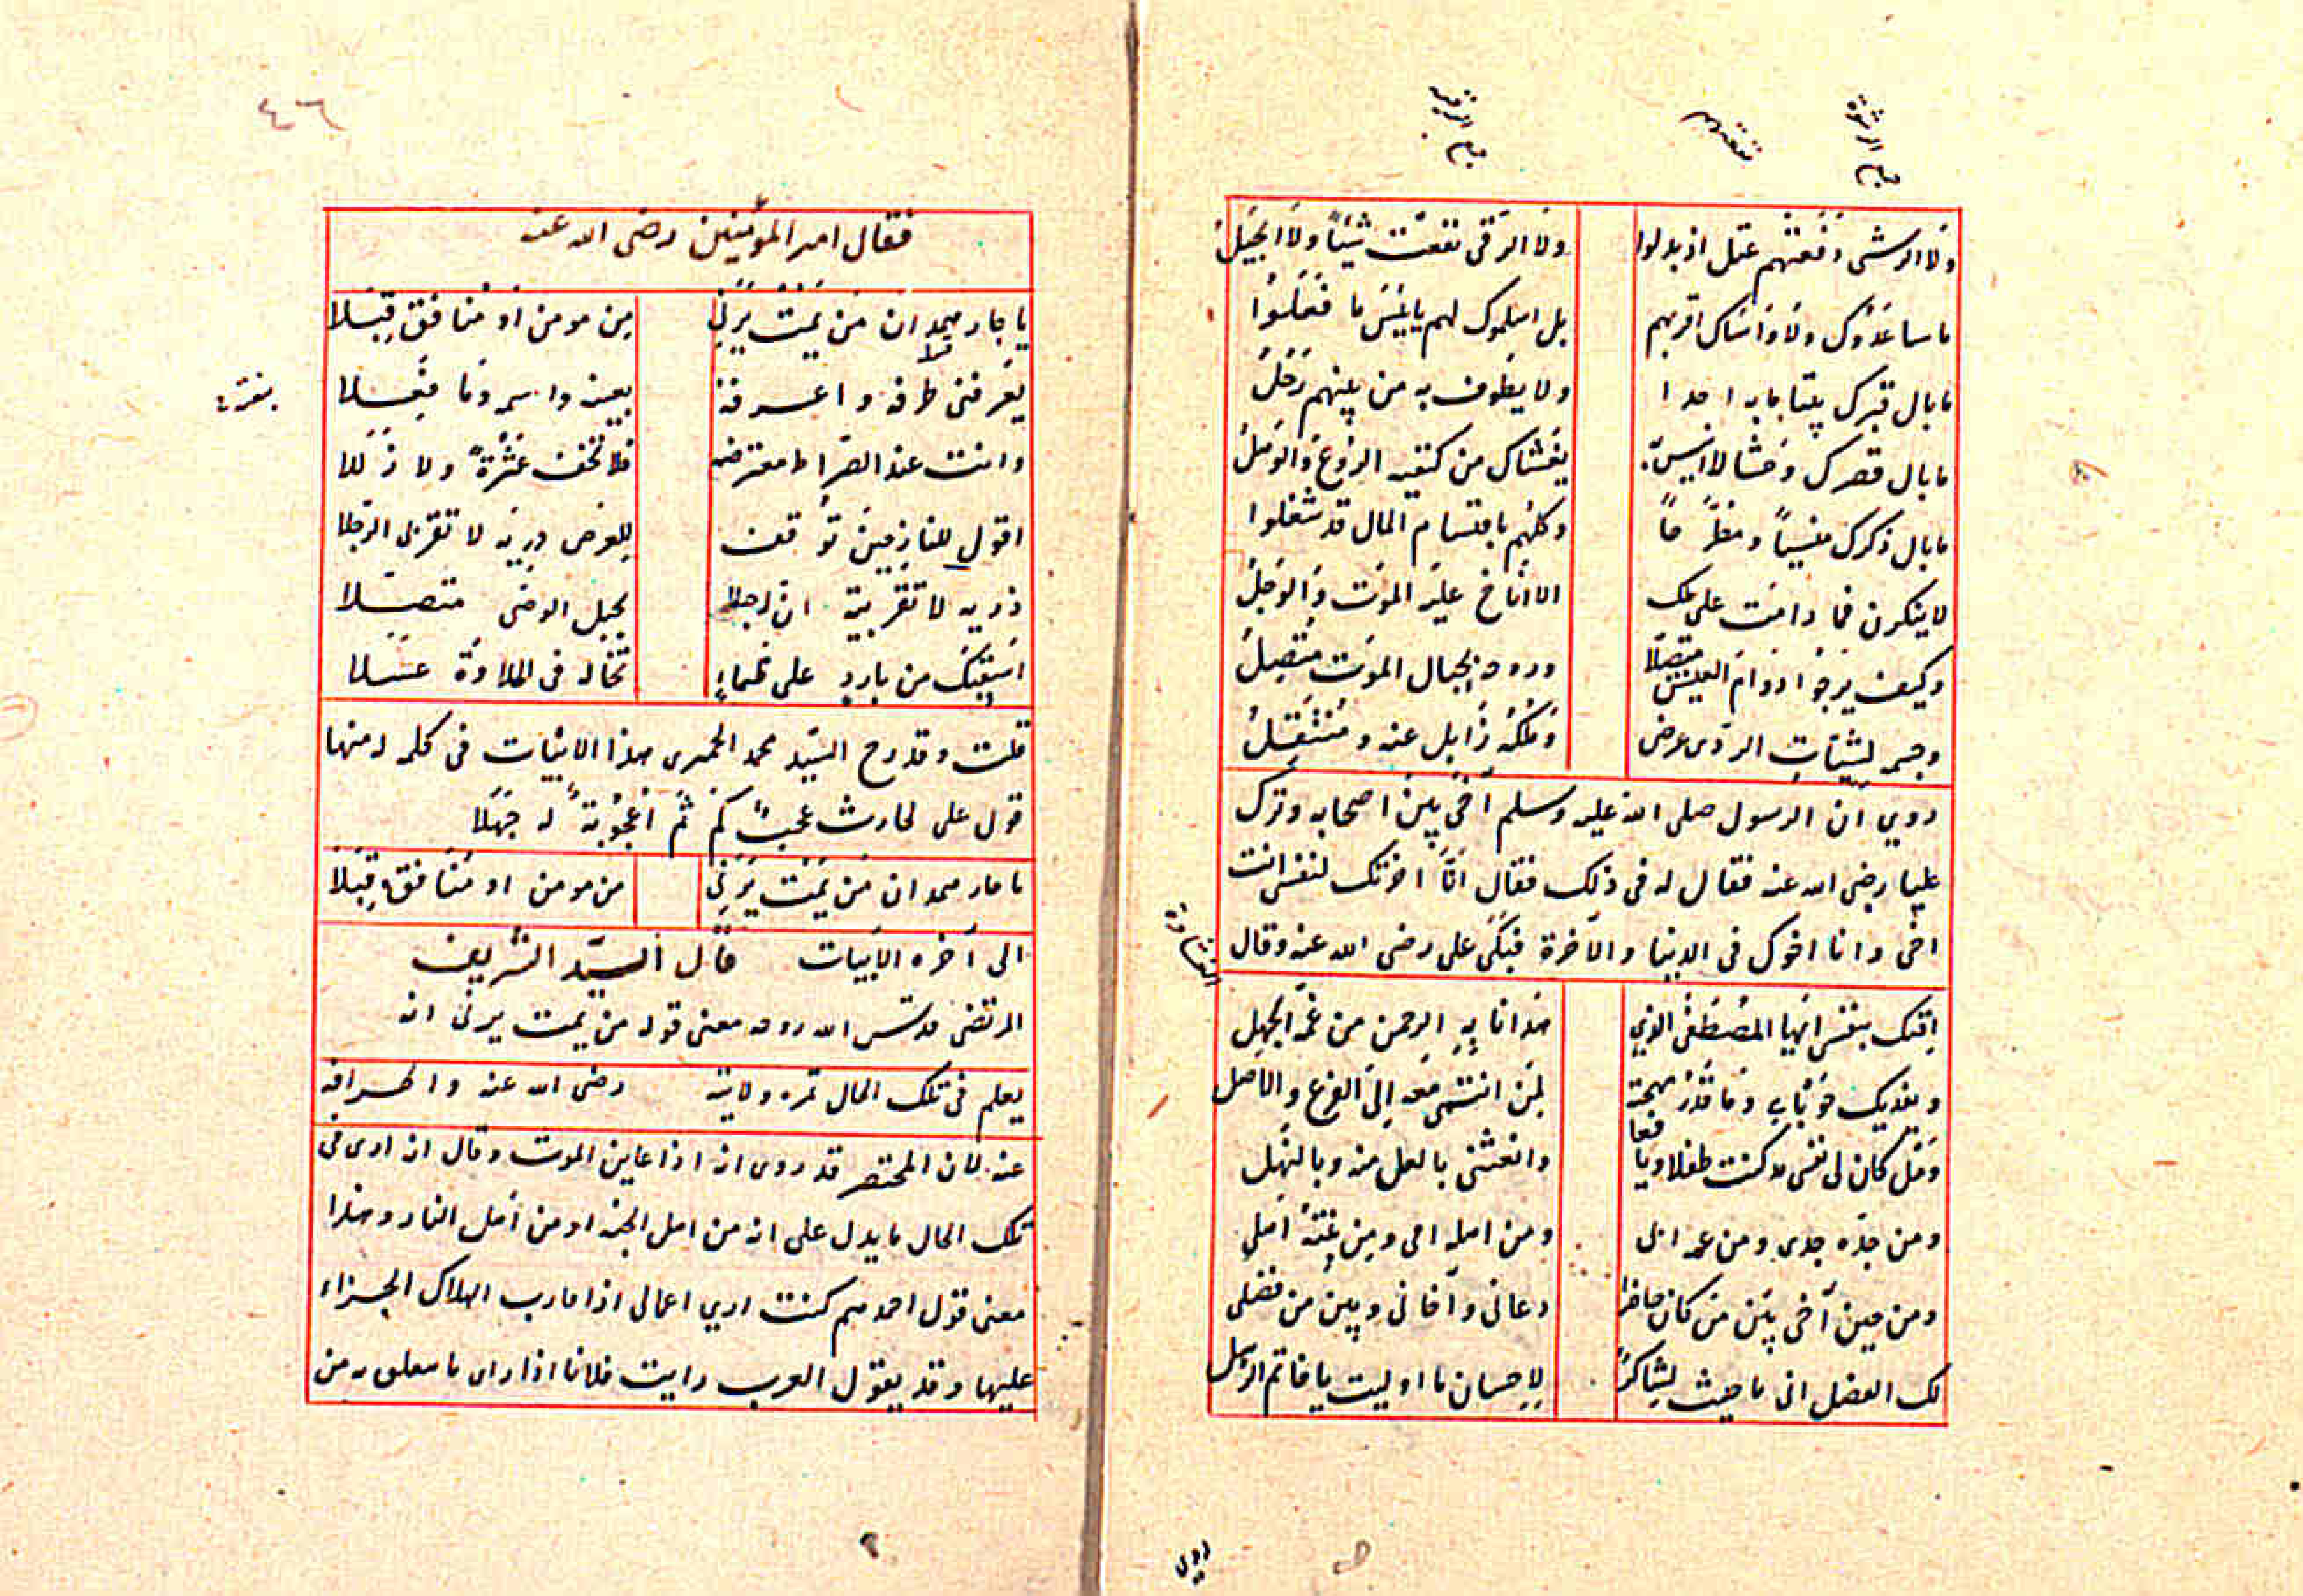 جمع الرشوة
جمع الرقية
ولا الرشى دفعتهم عنك اذ بدلوا
ولا الرقى نفعت شيئا ولا الحيل
ما ساعدوك ولا واساك اقربهم
بل اسلموك لهم يا بئس ما فعلوا
ما بال قبرك بابه احدا
ولا يطوف به من بينهم رجل
ما بال قصرك وحشا لا انيس به
يغشاك من كنفيه الروع والوهل
ما بال ذكرك منسيا ومطرحا
وكلهم باقتسام المال قد شغلوا
لا ينكرن فما دامت على ملك
الا اناخ عليه الموت والوجل
وكيف يرجوا دوام العيش متصلا
وروحه بحبال الموت متصل
وجسم لبنيات الردى عرض
وملكه زايل عنه ومنتقل
روي ان الرسول صلى الله عليه وسلم آخى بين اصحابه وترك
عليا رضى الله عنه فقال له فى ذلك فقال انا اخرتك لنفسى انت
اخى وانا اخوك فى الدينا والآخرة فبكى على رضى الله عنه وقال
اقيك بنفسى ايها المصطفى الذي
هدانا به الرحمن من غمة الجهل
ويفديك حوبايى وما قدر مهجتى
لمن انتمى معه الى الفرع والاصل
ومن كان لى مذ كنت طفلا ويافعا
وانعشنى بالعل منه وبالنهل
ومن جده جدى ومن عمه ابى
ومن اهله امى ومن بنته اهلى
ومن حين آخى بين من كان حاضرا
دعانى وآخانى وبين من فضلى
لك الفضل انى ما حييت لشاكر
لاحسان ما اوليت يا خاتم الرسل
روى
٤٦
فقال امير المؤمنين رضى الله عنه
يا حار همدان من يمت يرنى
من مومن او منافق قبلا
يعرفنى طرفه واعرفه
بعينه واسمه وما فعلا
بنعته
وانت عند الصراط معترضى
فلا تخف عثرة ولا زللا
اقول للنار حين توقف
للعرض ذريه لا تقربى الرجلا
ذريه لا تقربيه ان له
بحبل الوصى متصلا
اسقيك من بارد على ظماء
تخاله فى الحلاوة عسلا
قلت وقد السيد محمد الحميرى هذا الابيات فى كلمه ومنها
قول على لحارث عجب كم ثم اعجوبة له جهلا
يا حار همدان من يمت يرنى
من مومن او منافق قبلا
الى آخره الابيات قال السيد الشريف
المرتضى قدس الله روحه معنى قوله من يمت يرنى انه
يعلم فى تلك الحال ثمره ولايته رضى الله عنه وانحرافه
عنه لان المحتضر قد روى انه اذا عاين الموت وقال انه ارى فى
تلك الحال ما يدل على انه من اهل الجنه او من اهل النار وهذا
معنى قول احدهم كنت اري اعمالى اذا حارب الهلاك الجزاء
عليها وقد يقول العرب رايت فلانا اذا راى ما معلق به من